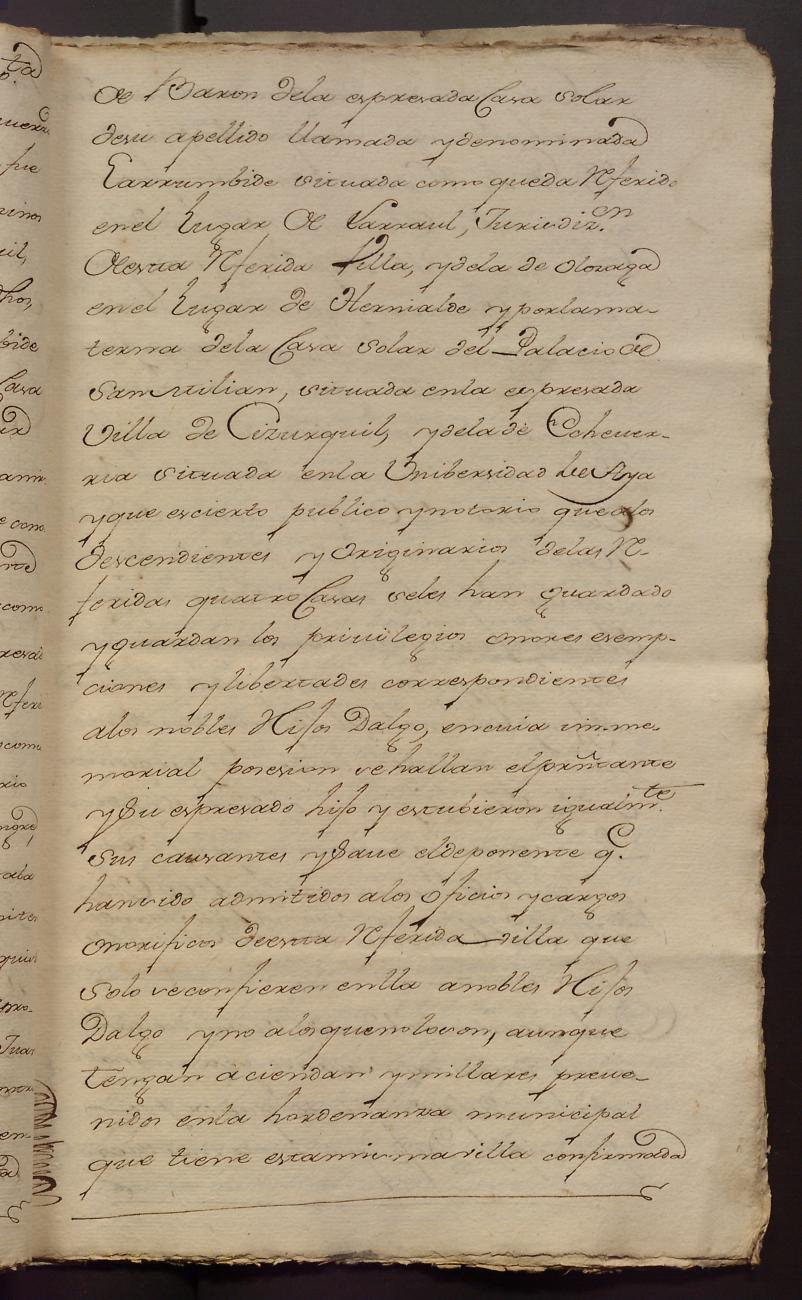 de Baron dela espresada Casa Solar
desu apellido llamada ydenominada
Larrumbide situada como queda Rferido
enel Lugar de Larraul, Jurisdizon.
deesta Rferida Villa, ydela de olozaga
enel Lugar de Hernialde yporlama-
terna dela Casa Solar del Palacio de
Sanmilian, situada enla espresada
Villa de Cizurquil, ydela de Echever-
ria situada enla Unibersidad de Aya
yque escierto publico ynotorio quealos
descendientes y Originarios delas R-
feridas quatro Casas seles han guardado
yguardan los privilegios onores esemp-
ciones ylibertades correspondientes
alos nobles Hijos Dalgo, encuia imme-
morial posesion sehallan elprñtante
ySu espresado hijo y estubieron igualmte.
Sus causantes ySave eldeponente q.
hansido admitidos alos oficios ycargos
onorificos deesta Rferida villa que
Solo seconfieren enlla anobles Hijos
Dalgo yno alosquenoloson, aunque
tengan aciendan ymillares preve-
nidos enla hordenanza municipal
que tiene estamismavilla confirmada